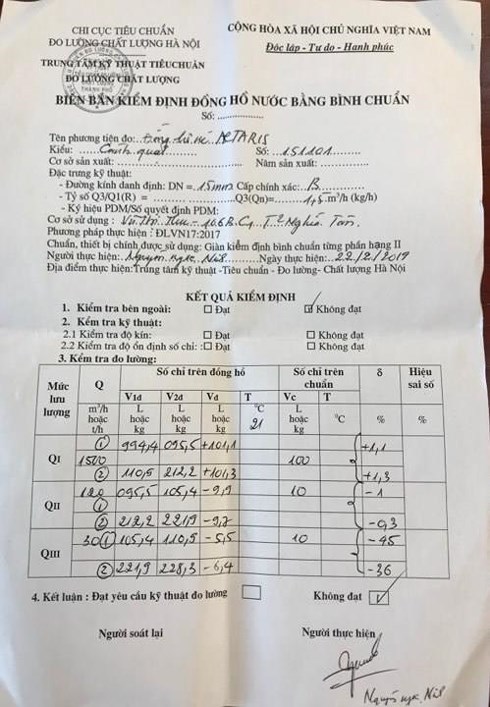 CHI CỤC TIÊU CHUẨN
ĐO LƯỜNG CHẤT LƯỢNG HÀ NỘI
CỘNG HÒA XÃ HỘI CHỦ NGHĨA VIỆT NAM
Độc lập - Tự do - Hạnh phúc
TRUNG TÂM KỸ THUẬT TIÊU CHUẨN
ĐO LƯỜNG CHẤT LƯỢNG
BIÊN BẢN KIỂM ĐỊNH ĐỒNG HỒ NƯỚC BẰNG BÌNH CHUẨN
Số: ....................
Tên phương tiện đo: Đồng hồ ACTARIS
Kiểu: Cánh quạt Số: 151101
Cơ sở sản xuất: Năm sản xuất:
Đặc trưng kỹ thuật:
- Đường kính danh định: DN = 15mm Cấp chính xác: B
- Tỷ số Q3/Q1(R) = Q3(Qn)= 1,5 m³/h (kg/h)
- Ký hiệu PDM/Số quyết định PDM:
Cơ sở sử dụng: Vũ Thị 106B Nghĩa Tân
Phương pháp thực hiện : ĐLVN17:2017
Chuẩn, thiết bị chính được sử dụng: Giàn kiểm định bình chuẩn từng phần hạng II
Người thực hiện: Nguyễn Ngọc Ngày thực hiện: 22/2/2019
Địa điểm thực hiện:Trung tâm kỹ thuật -Tiêu chuẩn - Đo lường- Chất lượng Hà Nội
KẾT QUẢ KIỂM ĐỊNH
1. Kiểm tra bên ngoài: ☐ Đạt ☑ Không đạt
2. Kểm tra kỹ thuật:
2.1 Kiểm tra độ kín: ☐ Đạt ☐ Không đạt
2.2 Kiểm tra độ ổn định số chỉ: :☐ Đạt ☐ Không đạt
3. Kểm tra đo lường:
Mức lưu lượng Q Số chỉ trên đồng hồ Số chỉ trên chuẩn δ Hiệu sai số
V1đ V2đ Vđ T Vc T
m³/h hoặc t/h L hoặc kg L hoặc kg L hoặc kg °C 21 L hoặc kg °C % %
① 994,4 095,5 +101,1 +1,1
QI 1500 100
② 110,5 212,2 +101,3 +1,3
120 095,5 105,4 -9,9 10 -1
QII ①
② 212,2 221,9 -9,7 -0,3
30 ① 105,4 110,5 -5,5 10 -45
QIII
② 221,9 228,3 -6,4 -36
4. Kết luận : Đạt yêu cầu kỹ thuật đo lường ☐ Không đạt ☑
Người soát lại Người thực hiện
Nguyễn Ngọc